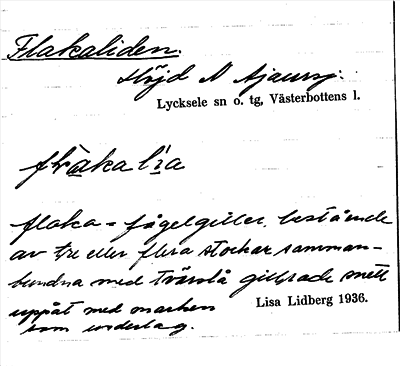 Flakaliden.
Höjd N Ajaur
Lycksele sn o. tg, Västerbottens l.
flaka = fågelgiller, bestående
av tre eller flera stockar samman-
bundna med tvärslå gillrade snett
uppåt med marken
Lisa Lidberg 1936.
som underlag.